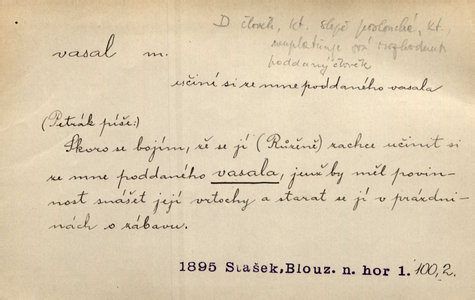 D člověk, kt. slepě poslouchá, kt.
neuplatňuje svá rozhodnutí
poddaný člověk
vasal m.
učiní si ze mne poddaného vasala
(Petrák píše:)
Skoro se bojím, že se jí (Růženě) zachce učinit si
ze mne poddaného vasala, jenž by měl povin-
nost snášet její vrtochy a starat se jí v prázdni-
nách o zábavu.
1895 Stašek, Blouz. n. hor 1. 100, 2.